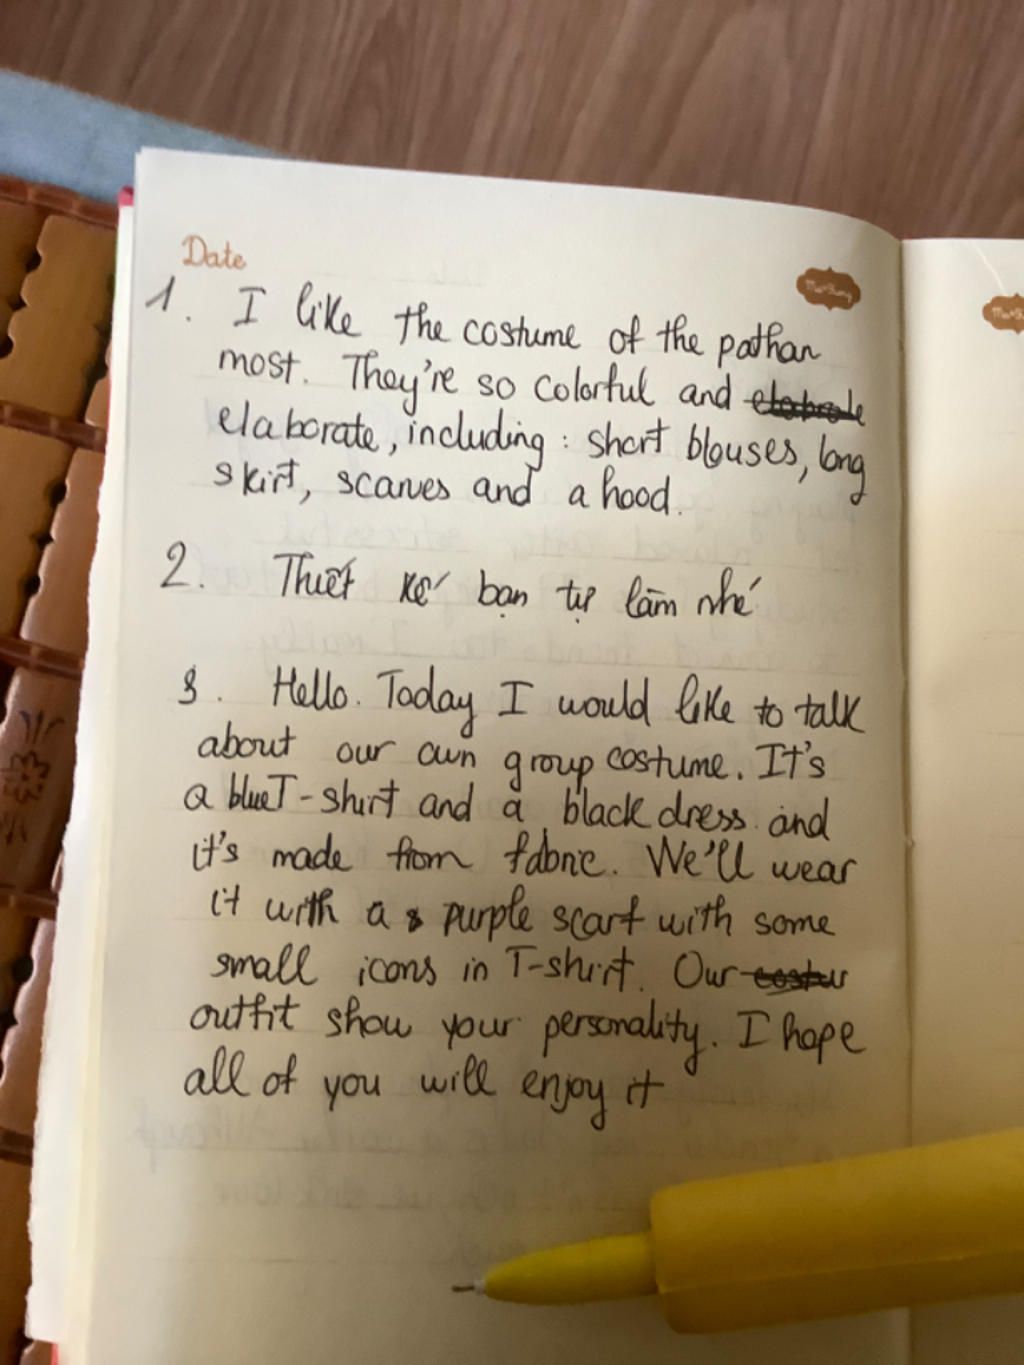 Date
1. I like the costume of the pathan
most. They're so colorful and
elaborate, including : short blouses, long
skirt, scarves and a hood.
2. Thiết kế bạn tự làm nhé
3. Hello. Today I would like to talk
about our own group costume. It's
a blue T-shirt and a black dress and
it's made from fabric. We'll wear
it with a purple scarf with some
small icons in T-shirt. Our
outfit show your personality. I hope
all of you will enjoy it